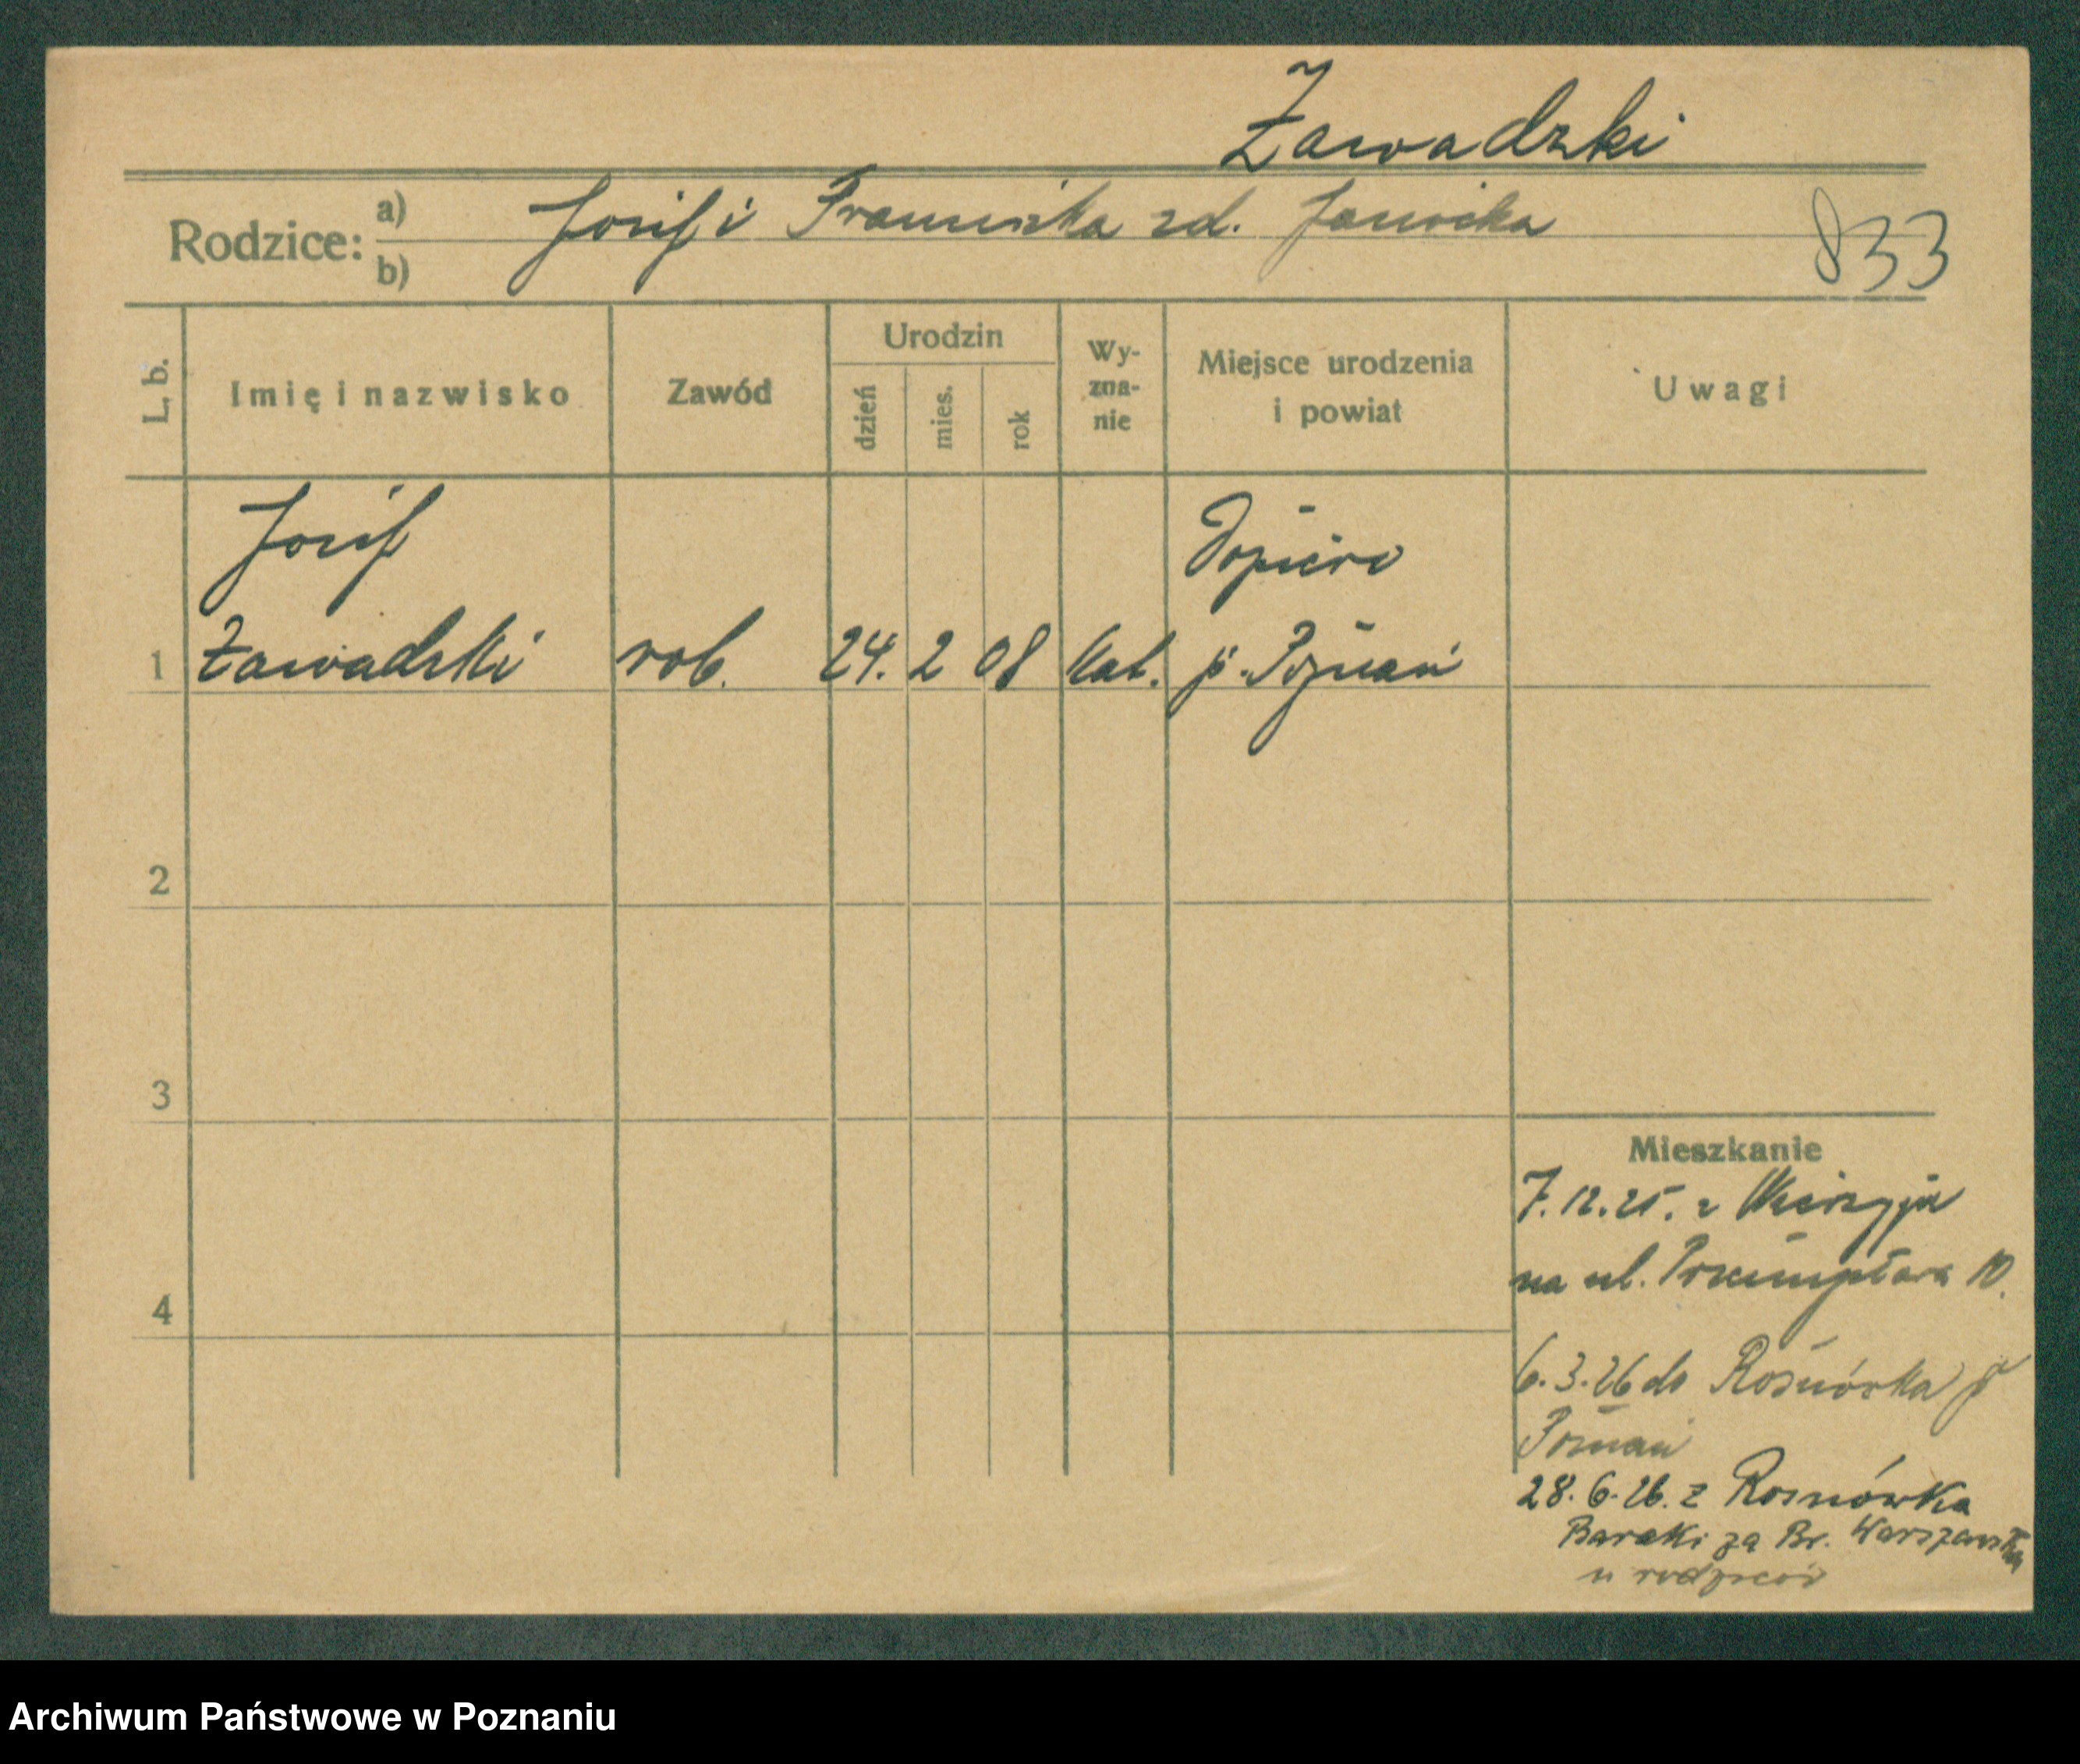 Zawadzki
Rodzice: a) b) Józef i Franciszka zd. Janicka
833
L. b. Imię i nazwisko Zawód Urodzin dzień mies. rok Wyznanie Miejsce urodzenia i powiat Uwagi
Józef
1 Zawadzki rob. 24. 2 08 kat. p. Poznań
2
3
Mieszkanie
7.12.25. z
na ul. 10.
4
6.3.26 do Rosnówka p
Poznań
28.6.26. z Rosnówka
Baraki za Br. Warszawską
u rodziców
Archiwum Państwowe w Poznaniu